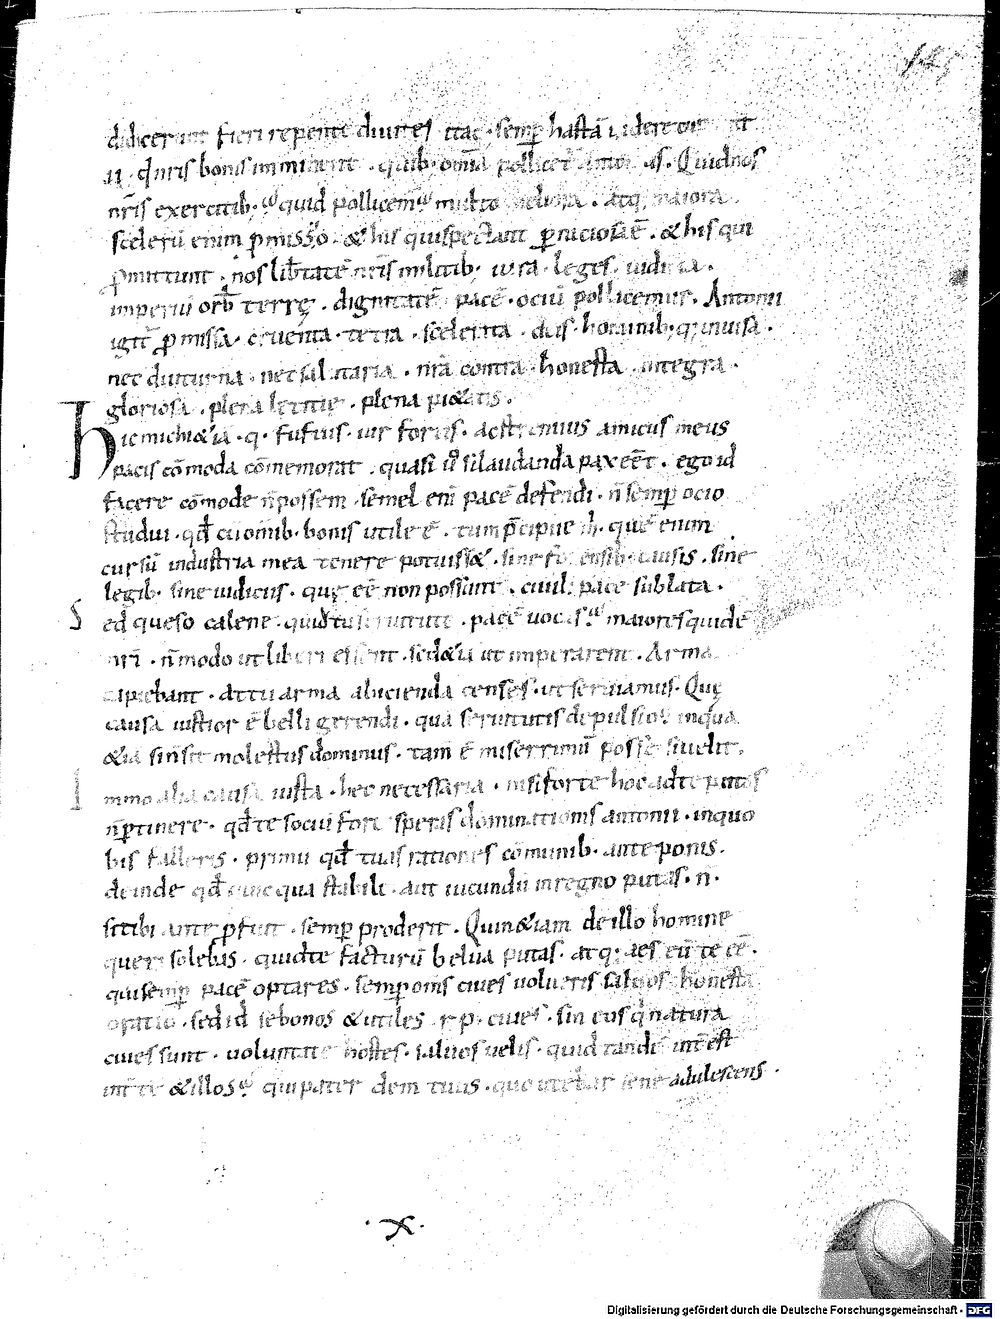 didicerunt fieri repente diuites itaq; semꝑ hastā uidere
ii. qͥ nr̄is bonis imminent . quib; omīa pollicet̄ Quid nos
nr̄is exercitib; quid pollicemͥ multo meliora . atq; maiora.
scelerū enim ꝓmissio . & his qui spectant ꝑniciosa ē . & his qui
ꝓmittunt . nos lib̄tatē nr̄is militib; iura . leges . iudicia .
imperiū orb̄ terrę . dignitatē pacē . ociū pollicemur . Antonii
igit̄ ꝓmissa . cruenta . tetra . scelerata . deis . hominib; q; inuisa .
nec diuturna . nec salutaria . nr̄a contra . honesta . integra .
gloriosa . plena letitię . plena pi&atis .
hic michi &iā . q . fufius . uir fortis . ac strenuus amicus meus
pacis cōmoda cōmemorat . quasi ū si laudanda pax eēt . ego id
facere cōmode n̄ possem . semel eni pacē defendi . n̄ semꝑ ocio
studui . qđ cū omīb; bonis utile ē . tum p̄cipue m . quē enim
cursū industria mea tenere potuiss& . sine forensib; causis . sine
legib; sine iudiciis . quę eē non possunt . ciuili pace sublata .
Sed queso calene . quid tu seruitutē . pacē uocas maiores quidē
nr̄i . n̄ modo ut liberi essent . sed &iā ut imperarent . Arma
capiebant . at tu arma abicienda censes . ut seruiamus . Quę
causa iustior ē belli gerendi . quā seruitutis depulsio inqua
&iā si n̄ sit molestus dominus . tam ē miserrimū posse si uelit .
Immo alia causa iusta . hec necessaria . nisi forte hoc ad te putas
n̄ ꝑtinere . qđ te sociū fore speras dominationis antonii . inquo
bis falleris . primū qđ tuas rationes cōmunib; anteponis .
deinde qđ quicqua stabile . aut iucundū in regno putas . n̄ .
si tibi ante ꝓfuit . semꝑ proderit . Quin&iam de illo homine
queri solebas . quid te facturū belua putas . atq; ais eū te eē .
qui semꝑ pacē optares . semꝑ om̄s ciues uolueris saluos honesta
oratio . sed id si bonos & utiles . r p . ciues . sin eos qͥ natura
ciues sunt . uoluntate hostes . saluos uelis . quid tandē int̄est
int̄ te & illos qui pater dem tuus . quo utebar sene adulescens .
.x.
Digitalisierung gefördert durch die Deutsche Forschungsgemeinschaft - DFG